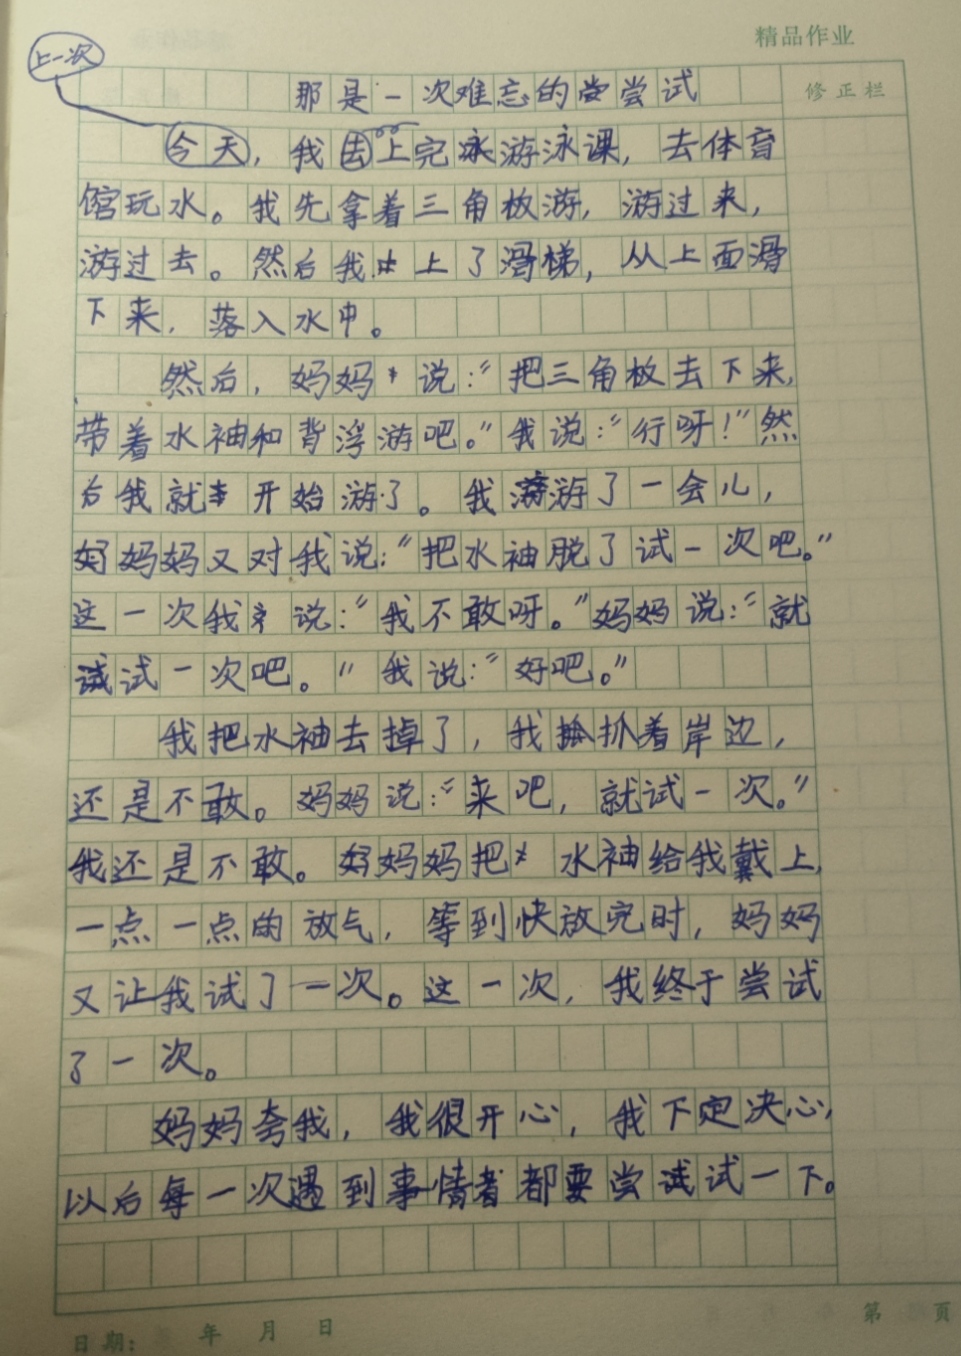 精品作业
上一次
那是一次难忘的尝尝试
修正栏
今天，我去上完泳游泳课，去体育
馆玩水。我先拿着三角板游，游过来，
游过去。然后我上了滑梯，从上面滑
下来，落入水中。
然后，妈妈说：“把三角板去下来，
带着水袖和背浮游吧。”我说：“行呀！”然
后我就开始游了。我游了一会儿，
妈妈又对我说：“把水袖脱了试一次吧。”
这一次我说：“我不敢呀。”妈妈说：“就
试一次吧。”我说：“好吧。”
我把水袖去掉了，我扒着岸边，
还是不敢。妈妈说：“来吧，就试一次。”
我还是不敢。妈妈把水袖给我戴上，
一点一点的放气，等到快放完时，妈妈
又让我试了一次。这一次，我终于尝试
了一次。
妈妈夸我，我很开心，我下定决心，
以后每一次遇到事情都要尝试一下。
日期： 年 月 日
第 页